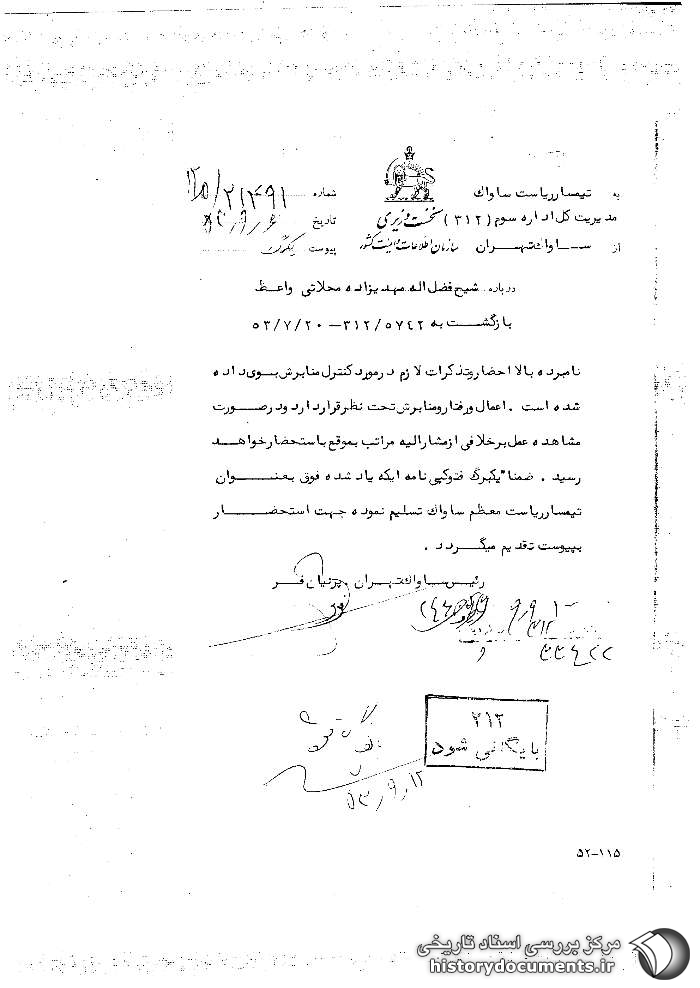 به تیمسار ریاست ساواك شماره ۲۱۴۹۱/
مدیریت کل اداره سوم (۳۱۲) نخست وزیری تاریخ ۵۳/۹/۶
از ســاواك تهـران سازمان اطلاعات و امنیت کشور پیوست یکبرگ
درباره شیخ فضل اله مهدیزاده محلاتی واعـظ
بازگشت به ۳۱۲/۵۷۴۲-۵۳/۷/۲۰
نامبرده بالا احضار و تذکرات لازم در مورد کنترل منابرش بوی داده
شده است . اعمال و رفتار و منابرش تحت نظر قرار دارد و در صورت
مشاهده عمل برخلافی از مشارالیه مراتب بموقع باستحضار خواهد
رسید . ضمنا" یکبرگ فتوکپی نامه ایکه یاد شده فوق بعنوان
تیمسار ریاست معظم ساواك تسلیم نموده جهت استحضار
بپیوست تقدیم میگردد .
رئیس ساواك تهران . پرنیان فر
۳۱۲
۳۱۲
بایگانی شود
۵۳/۹/۱۲
۵۲-۱۱۵
مرکز بررسی اسناد تاریخی
historydocuments.ir